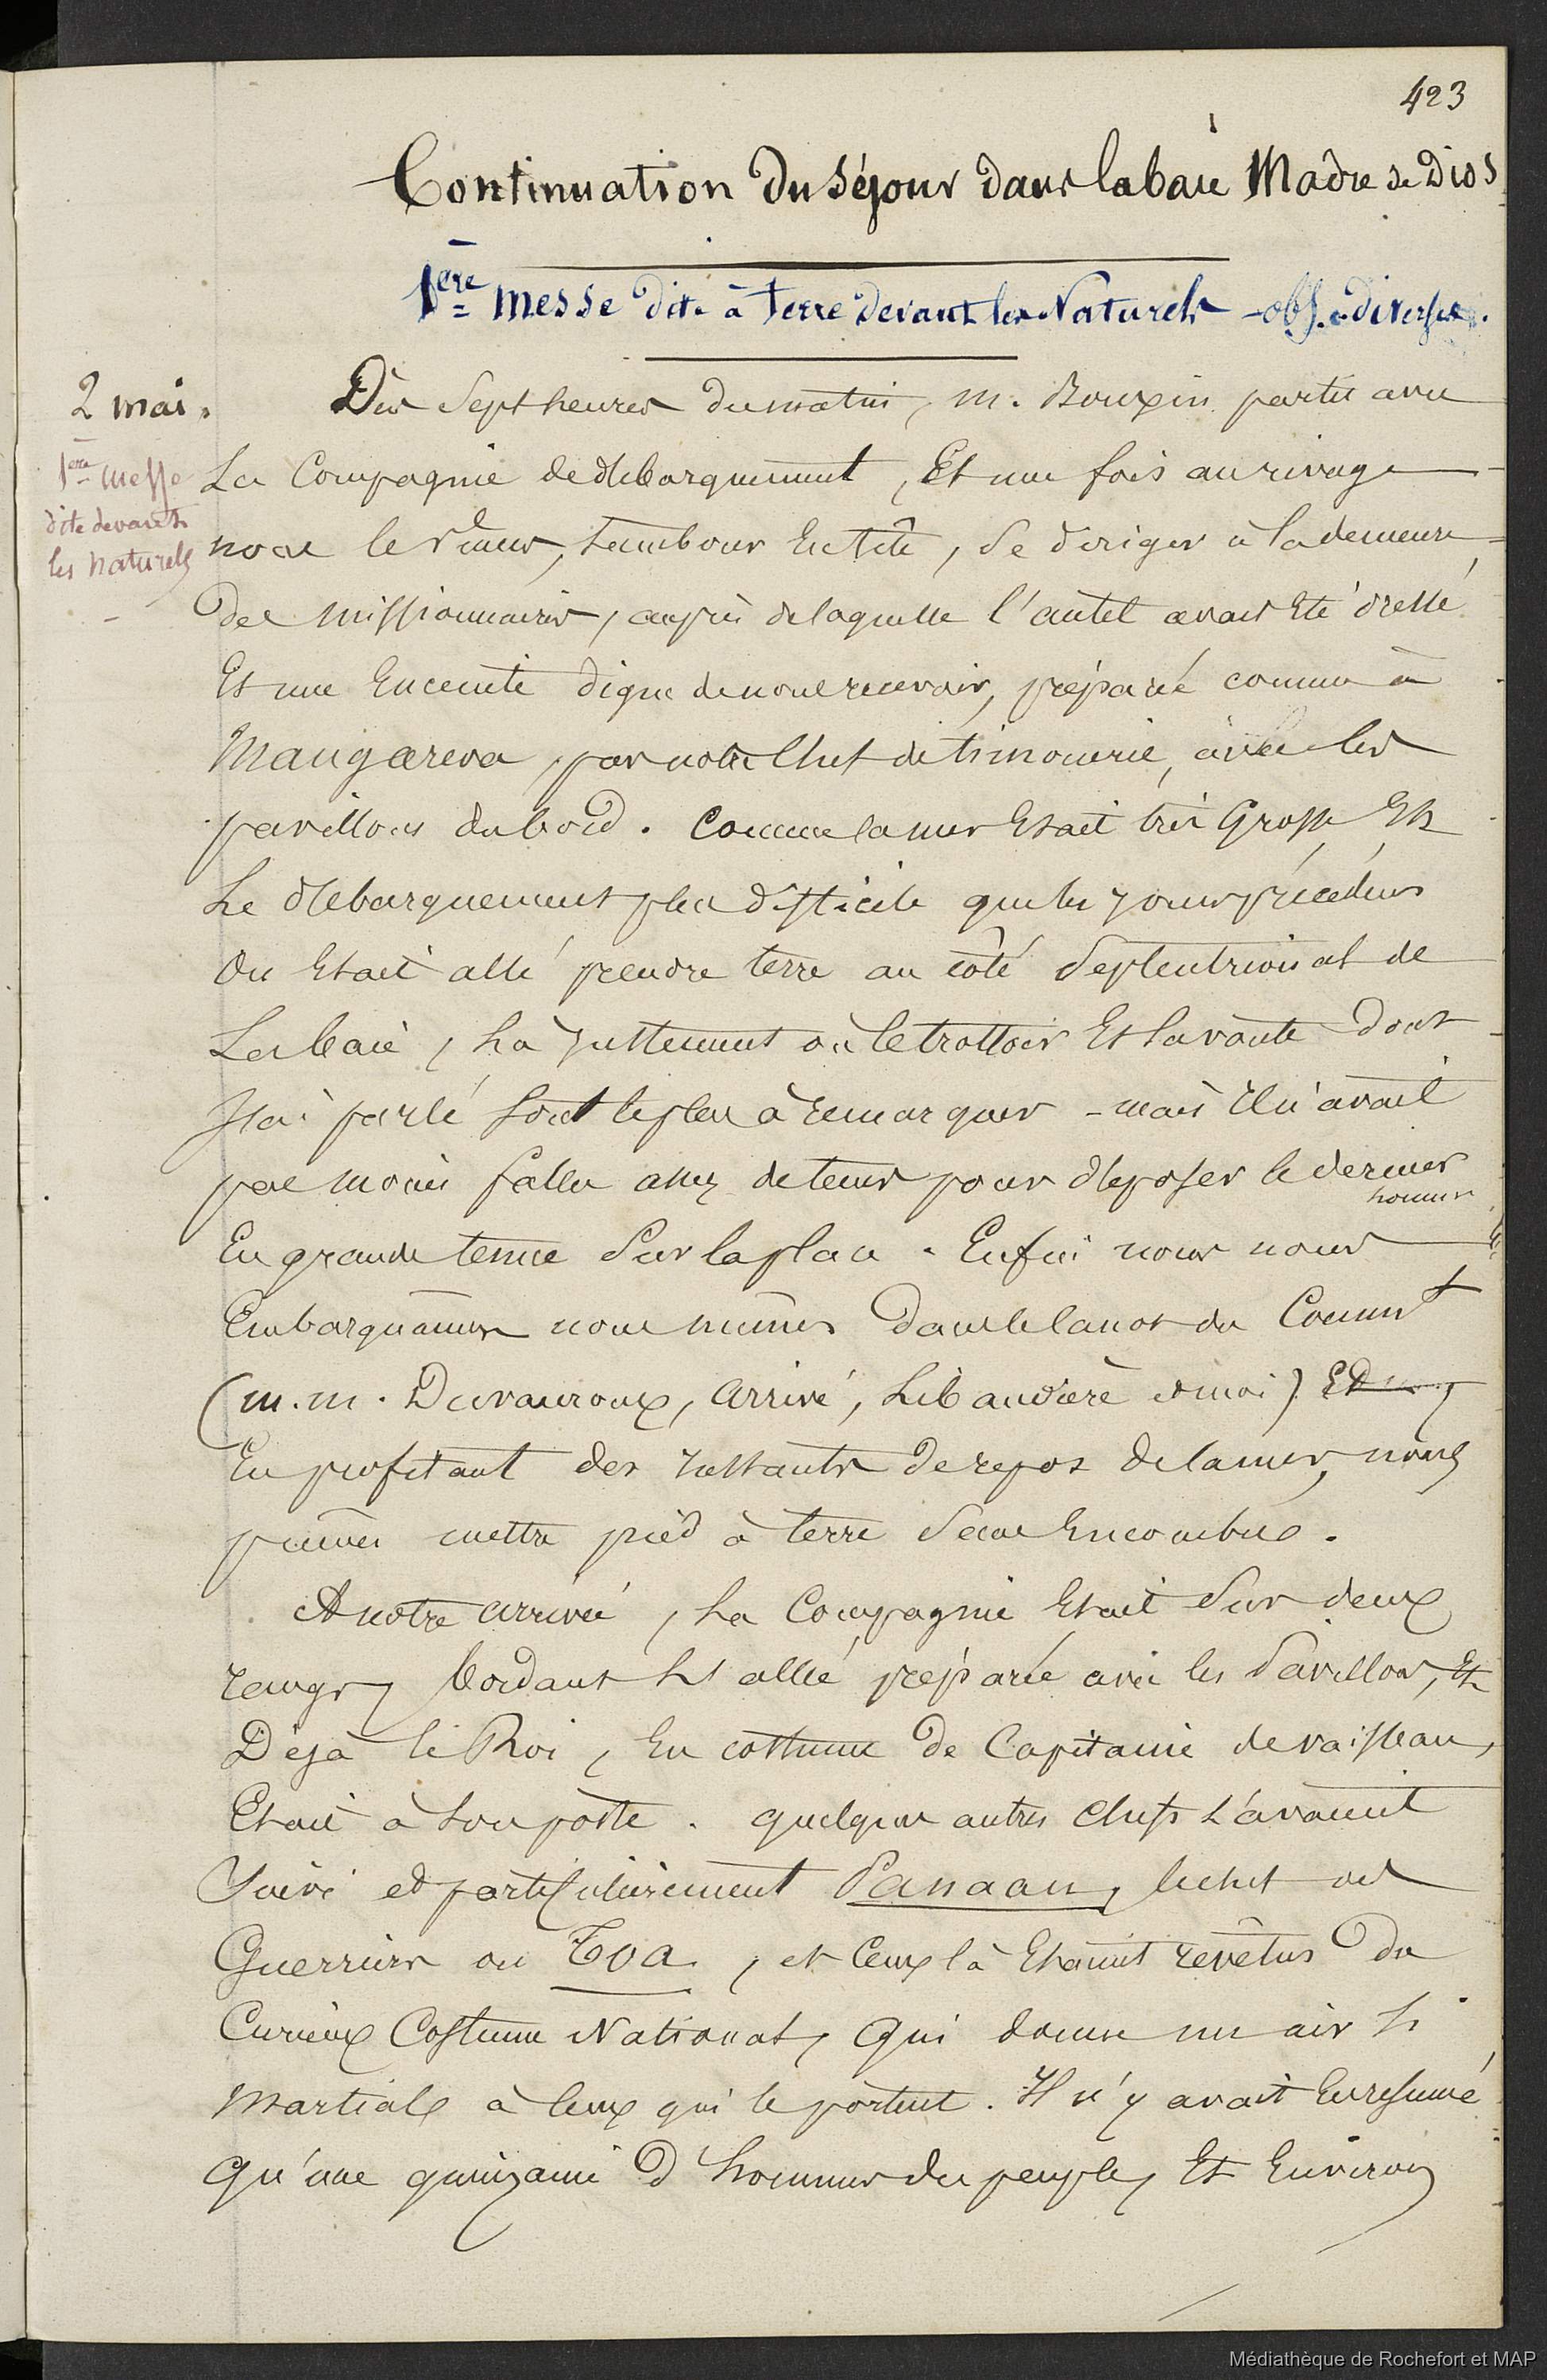 423
Continuation du séjour dans la baie Madre de Dios
1ère messe dite à terre devant les Naturels - obs. diverses.
2 mai.
1ère messe
dite devant
les naturels
Dès sept heures du matin, M. Bouzin partit avec
La Compagnie de débarquement, Et une fois au rivage
nous le vîmes, tambour En tête, se diriger à la demeure
des missionnaires, auprès de laquelle l'autel avait Eté dressé
Et une Enceinte digne de nous recevoir, préparée comme à
Mangareva, par notre Chef de timonerie, avec les
pavillons du bord. Comme la mer Etait très Grosse, Et
Le débarquement plus difficile que les jours précédens
On Etait allé prendre terre au côté Septentrional de
La baie, Là justement où le trottoir Et la voute dont
J'ai parlé sont le plus à remarquer - mais Il n'avait
pas moins fallu assez de tems pour déposer le dernier
homme
En grande tenue Sur la place. Enfin nous nous
Embarquâmes nous mêmes dans le canot du Commt
(M.M. Duvauroux, arrivé, Libaudière et moi)
En profitant des instants de repos de la mer, nous
pûmes mettre pied à terre sans Encombre.
A notre arrivée, La Compagnie Etait Sur deux
rangs, bordant l'allée préparée avec les Pavillons, Et
Déjà le Roi, En costume de Capitaine de vaisseau,
Etait à son poste. quelques autres chefs l'avaient
Suivi et particulièrement Panaau, le chef des
Guerriers ou Toa, et Ceux là Etaient revêtus du
Curieux Costume National, Qui donne un air si
martial à ceux qui le portent. Il n'y avait En résumé
Qu'une quinzaine d'hommes du peuple, Et Environ
Médiathèque de Rochefort et MAP